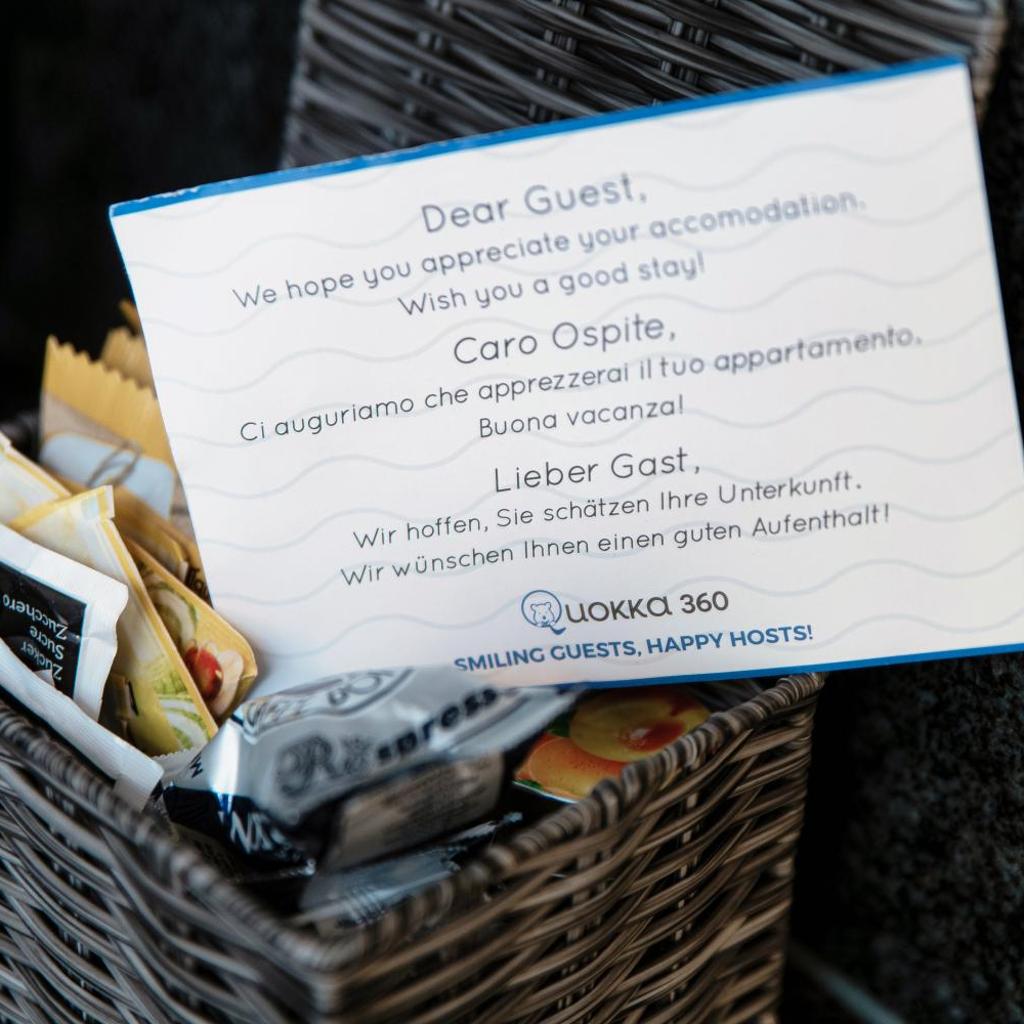 Dear Guest,
We hope you appreciate your accomodation.
Wish you a good stay!
Caro Ospite,
Ci auguriamo che apprezzerai il tuo appartamento.
Buona vacanza!
Lieber Gast,
Wir hoffen, Sie schätzen Ihre Unterkunft.
Wir wünschen Ihnen einen guten Aufenthalt!
QUOKKA 360
SMILING GUESTS, HAPPY HOSTS!
Zucker
Sucre
Zucchero